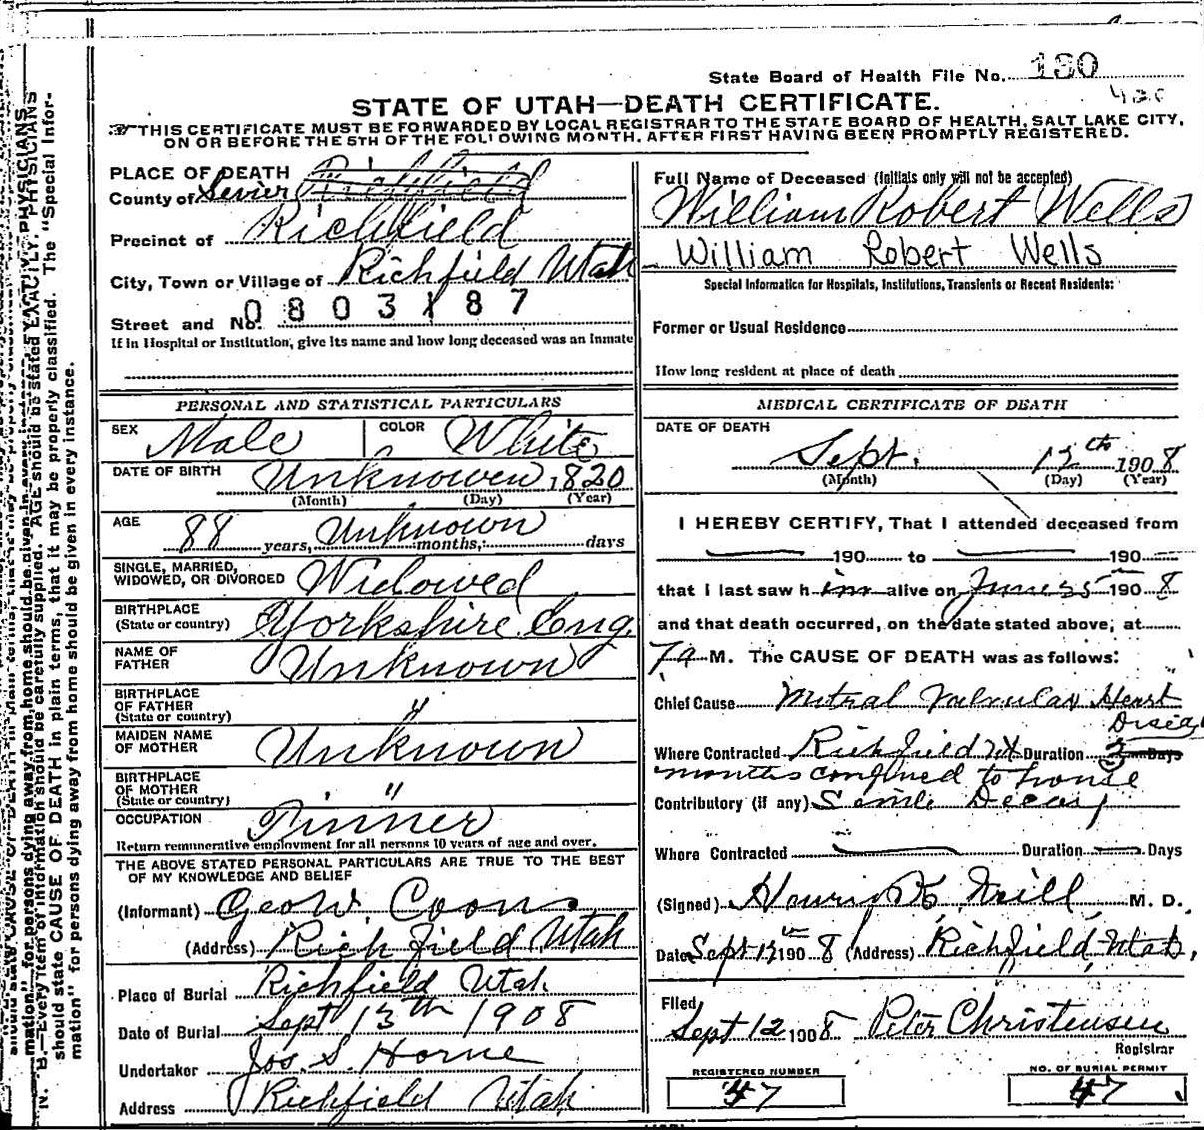 State Board of Health File No. 180
430
STATE OF UTAH—DEATH CERTIFICATE.
THIS CERTIFICATE MUST BE FORWARDED BY LOCAL REGISTRAR TO THE STATE BOARD OF HEALTH, SALT LAKE CITY,
ON OR BEFORE THE 5TH OF THE FOLLOWING MONTH, AFTER FIRST HAVING BEEN PROMPTLY REGISTERED.
PLACE OF DEATH
County of Sevier Richfield
Precinct of Richfield
City, Town or Village of Richfield Utah
Street and No. 0803187
If in Hospital or Institution, give its name and how long deceased was an inmate
Full Name of Deceased (Initials only will not be accepted)
William Robert Wells
William Robert Wells
Special Information for Hospitals, Institutions, Transients or Recent Residents:
Former or Usual Residence
How long resident at place of death
PERSONAL AND STATISTICAL PARTICULARS
SEX Male COLOR White
DATE OF BIRTH Unknowen, 1820
(Month) (Day) (Year)
AGE 88 years, Unknown months, days
SINGLE, MARRIED,
WIDOWED, OR DIVORCED Widowed
BIRTHPLACE
(State or country) Yorkshire Eng.
NAME OF
FATHER Unknown
BIRTHPLACE
OF FATHER "
(State or country)
MAIDEN NAME
OF MOTHER Unknown
BIRTHPLACE
OF MOTHER "
(State or country)
OCCUPATION Tinner
Return remunerative employment for all persons 10 years of age and over.
THE ABOVE STATED PERSONAL PARTICULARS ARE TRUE TO THE BEST
OF MY KNOWLEDGE AND BELIEF
(Informant) Geo W. Coons
(Address) Richfield Utah
Place of Burial Richfield Utah
Date of Burial Sept 13th 1908
Undertaker Jos. S. Horne
Address Richfield Utah
MEDICAL CERTIFICATE OF DEATH
DATE OF DEATH
Sept. 12th 1908
(Month) (Day) (Year)
I HEREBY CERTIFY, That I attended deceased from
190 to 190
that I last saw him alive on June 1908
and that death occurred, on the date stated above, at
7 a M. The CAUSE OF DEATH was as follows:
Chief Cause Mitral Valvular Heart
Disease
Where Contracted Richfield Ut Duration 3 Days
months confined to house
Contributory (if any) Senile Decay
Where Contracted Duration Days
(Signed) Neill M. D.
Date Sept 1908 (Address) Richfield Utah,
Filed,
Sept 12 1908 Peter Christensen
Registrar
REGISTERED NUMBER
47
NO. OF BURIAL PERMIT
47
N. B.—Every item of information should be carefully supplied. AGE should be stated EXACTLY. PHYSICIANS
should state CAUSE OF DEATH in plain terms, that it may be properly classified. The "Special Infor-
mation" for persons dying away from home should be given in every instance.